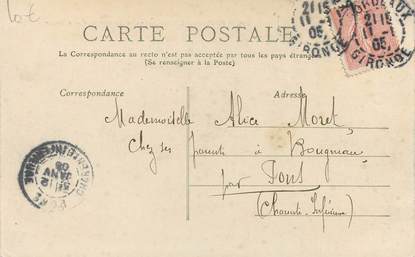 10 €
CARTE POSTALE
La Correspondance au recto n'est pas acceptée par tous les pays étrangers
(Se renseigner à la Poste)
Correspondance
Adresse
Mademoiselle Alice Moret
Chez ses parents à Bougneau
par Pons
(Charente-Inférieure)
BORDEAUX
21 15
11 -1
06
GIRONDE
21 15
11 -1
06
GIRONDE
PONS
JANV
06
CHARENTE INFERIEURE